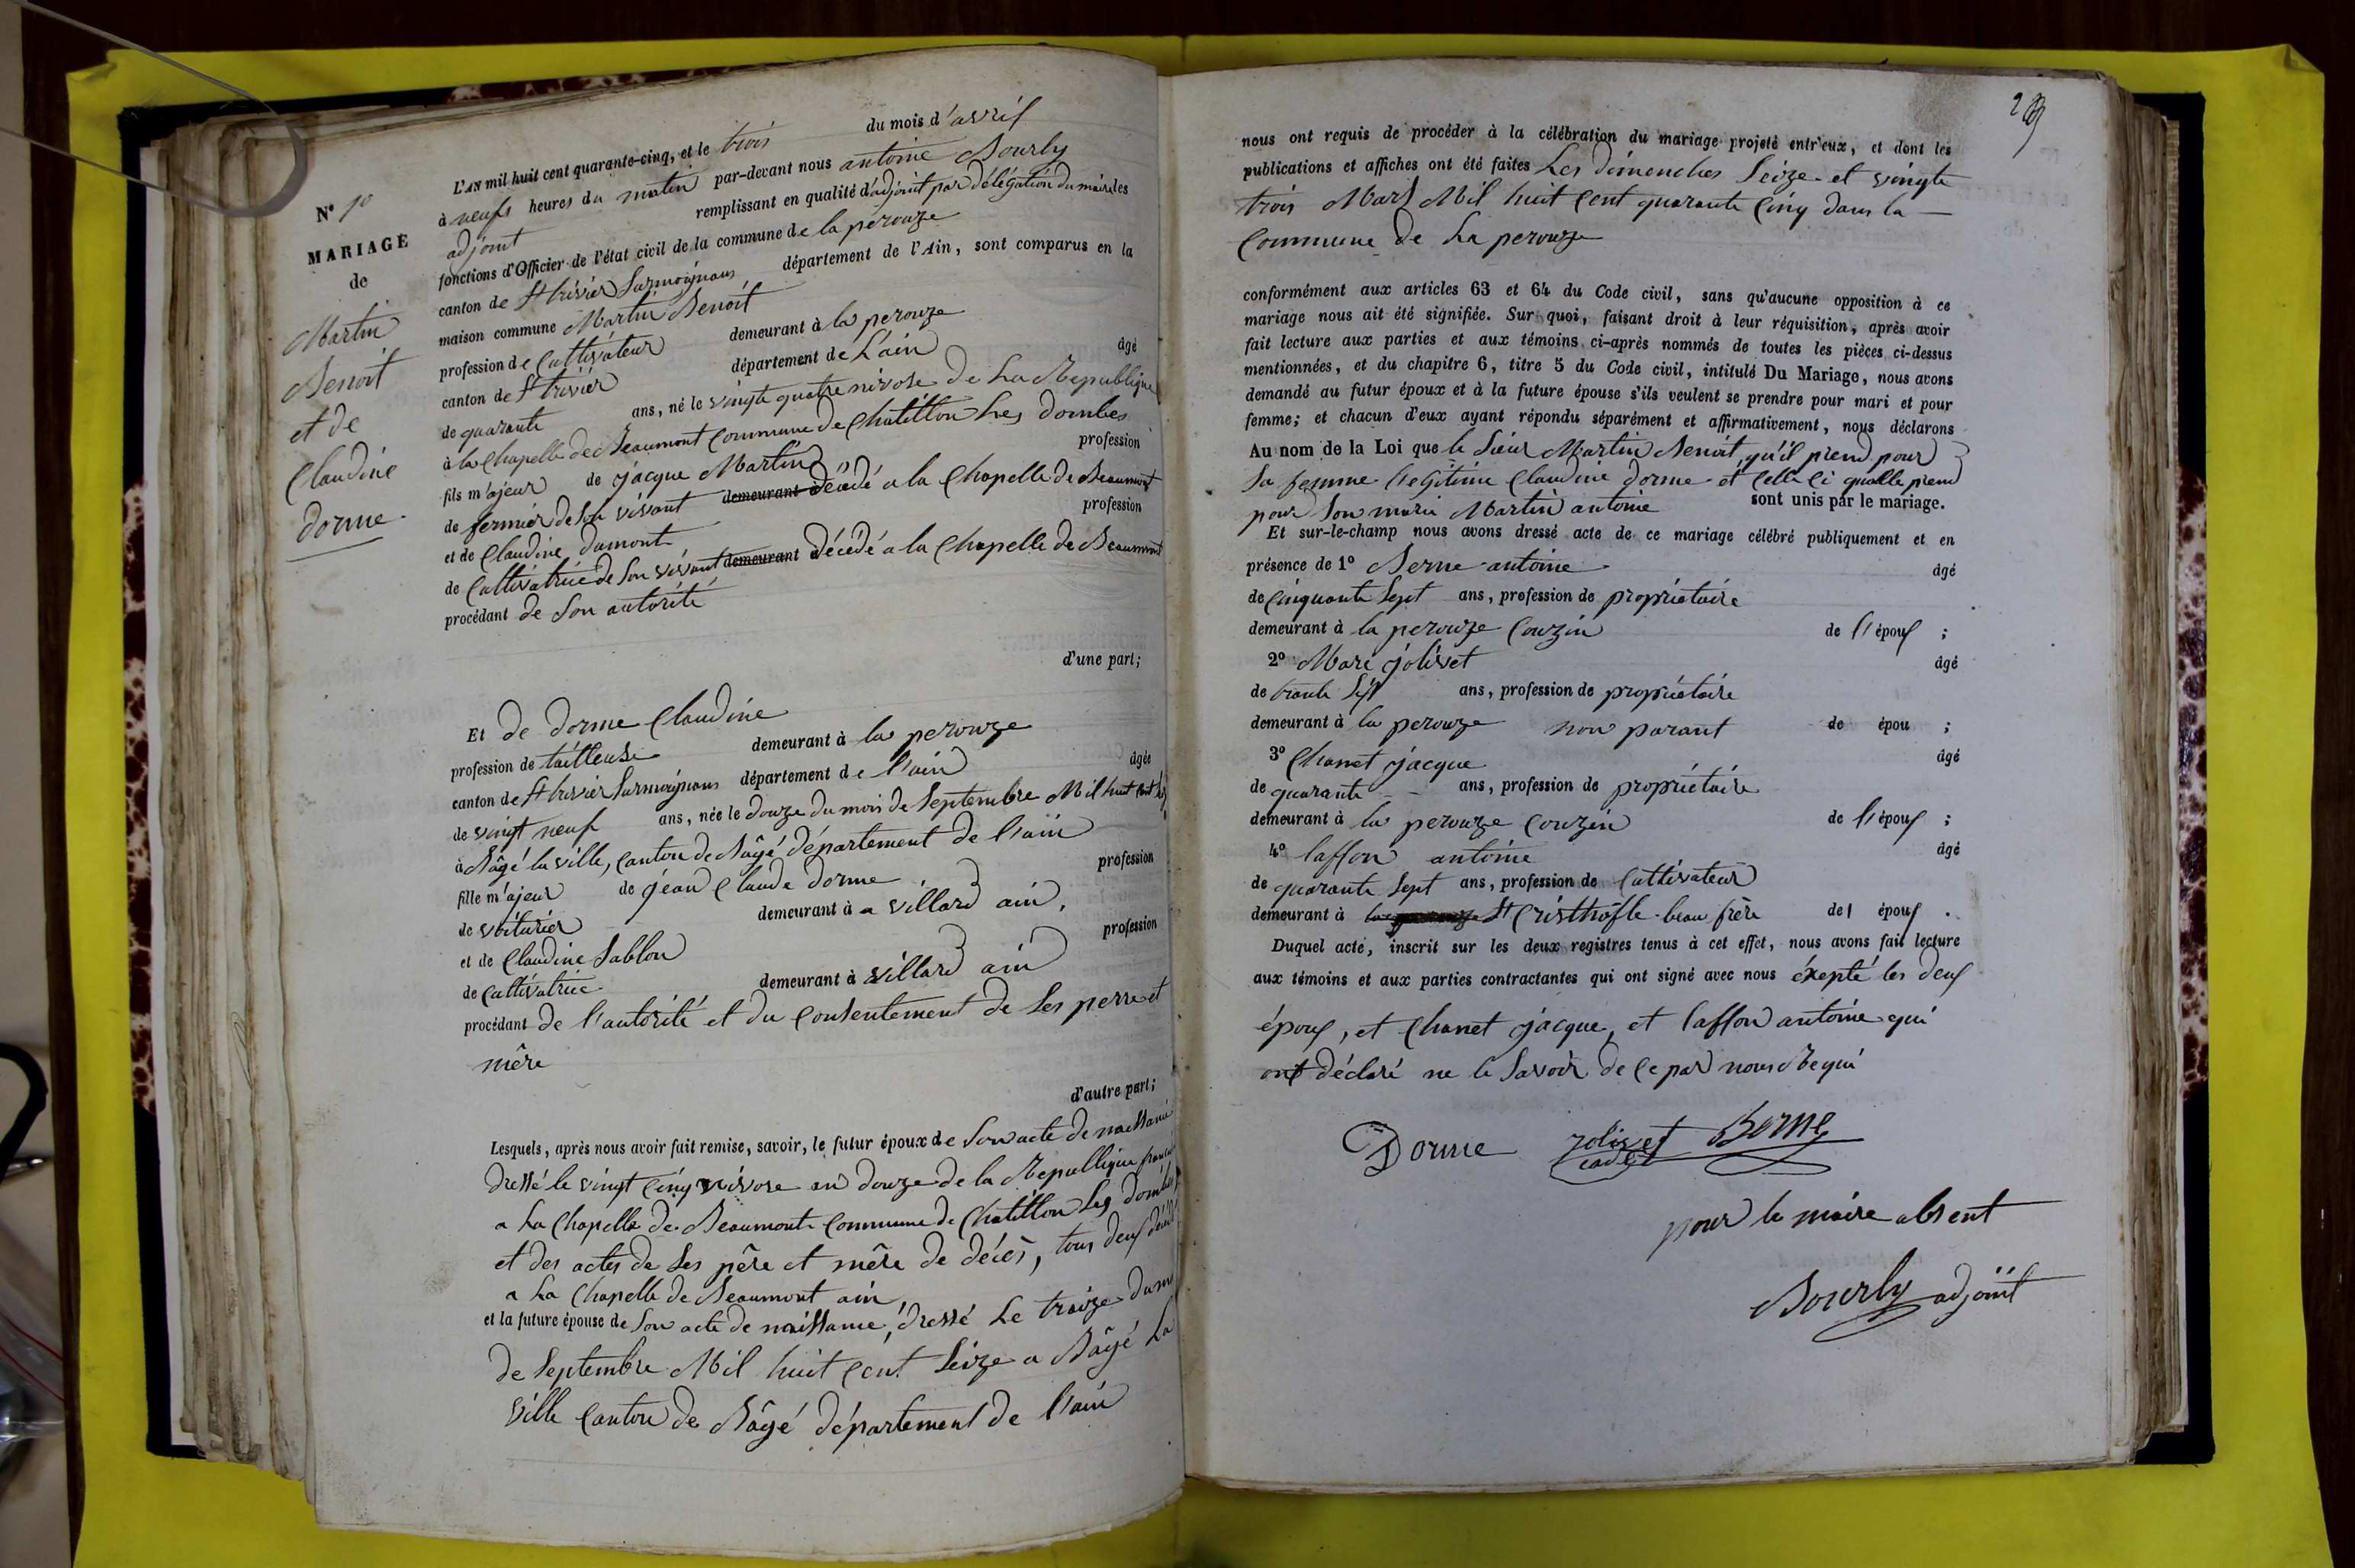 N° 10
MARIAGE
de
Martin
Benoit
et de
Claudine
dorme
L'AN mil huit cent quarante-cinq, et le trois du mois d'avril
à neufs heures du matin par-devant nous antoine Bourly
adjoint remplissant en qualité d'adjoint par délégation du maire les
fonctions d'Officier de l'état civil de la commune de la perouze
canton de St trivier Surmoignans département de l'Ain, sont comparus en la
maison commune Martin Benoit
profession de Cultivateur demeurant à la perouze
canton de St trivier département de L'ain âgé
de quarante ans, né le vingte quatre nivose de La Republique
à la Chapelle de Beaumont Commune de Chatillon Les dombes
fils majeur de jacque Martin profession
de fermier de son vivant demeurant décédé a la Chapelle de Beaumont
et de Claudine dumont profession
de Cultivatrice de Son vivant demeurant Décédé a la Chapelle de Beaumont
procédant de Son autorité
d'une part;
Et de dorme Claudine
profession de tailleuse demeurant à la perouze
canton de St trivier Surmoignans département de l'ain âgée
de vingt neuf ans, née le douze du mois de Septembre Mil huit Cent
à Bâgé la ville, Canton de Bâgé département de l'ain
fille majeur de jean Claude dorme profession
de voiturier demeurant à a villard ain,
et de Claudine Sablon profession
de Cultivatrice demeurant à villard ain
procédant de l'autorité et du Consentement de Ses perre et
mère
d'autre part;
Lesquels, après nous avoir fait remise, savoir, le futur époux de Son acte de naissance
dressé le vingt Cinq nivose an douze de la Republique
a La Chapelle de Beaumont Commune de Chatillon Les dombes
et des actes de Ses père et mère de décès, tous deux
a La Chapelle de Beaumont ain,
et la future épouse de Son acte de naissance, dressé Le traize du
de Septembre Mil huit Cent Seize a Bâgé La
ville Canton de Bâgé département de l'ain
nous ont requis de procéder à la célébration du mariage projeté entr'eux, et dont les
publications et affiches ont été faites Les dimenches Seize et vingte
trois Mars Mil huit Cent quarante Cinq dans la
Commune de La perouze
conformément aux articles 63 et 64 du Code civil, sans qu'aucune opposition à ce
mariage nous ait été signifiée. Sur quoi, faisant droit à leur réquisition, après avoir
fait lecture aux parties et aux témoins ci-après nommés de toutes les pièces ci-dessus
mentionnées, et du chapitre 6, titre 5 du Code civil, intitulé Du Mariage, nous avons
demandé au futur époux et à la future épouse s'ils veulent se prendre pour mari et pour
femme; et chacun d'eux ayant répondu séparément et affirmativement, nous déclarons
Au nom de la Loi que le Sieur Martin Benoit, qu'il prend pour
Sa femme legitime Claudine dorme et Celle Ci qualle prend
pour Son marie Martin antoine sont unis par le mariage.
Et sur-le-champ nous avons dressé acte de ce mariage célébré publiquement et en
présence de 1° Berne antoine âgé
de Cinquante Sept ans, profession de propriétaire
demeurant à la perouze Couzin de l'époux ;
2° Marc jolivet âgé
de trante Sept ans, profession de propriétaire
demeurant à la perouze non parant de épou ;
3° Chanet jacque âgé
de quarante ans, profession de propriétaire
demeurant à la perouze Couzin de l'époux ;
4° laffon antoine âgé
de quarante Sept ans, profession de Cultivateur
demeurant à St Cristhofle beau frère de l époux .
Duquel acte, inscrit sur les deux registres tenus à cet effet, nous avons fait lecture
aux témoins et aux parties contractantes qui ont signé avec nous éxepté les deux
époux, et Chanet jacque, et laffon antoine qui
ont déclaré ne le Savoir de Ce par nous Requi
Dorme jolivet cadet Berne
pour le maire absent
Bourly adjoint